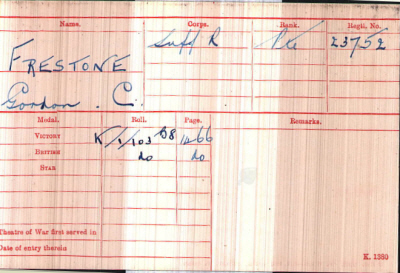 Name. Corps. Rank. Regtl. No.
FRESTONE Suff R Pte 23752
Gordon . C.
Medal. Roll. Page. Remarks.
VICTORY K/1/103 B8 1266
BRITISH do do
STAR
Theatre of War first served in
Date of entry therein
K. 1380